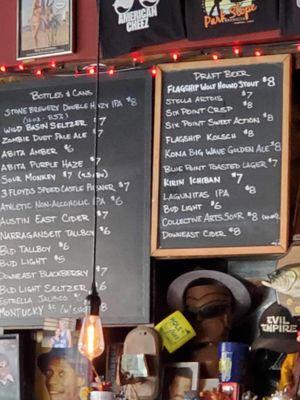 AMERICAN
CHEEZ
Park Slope
BOTTLES & CANS
STONE BREWERY DOUBLE HAZY IPA $8
WILD BASIN SELTZER $7
ZOMBIE DUST PALE ALE $7
ABITA AMBER $6
ABITA PURPLE HAZE $7
SOUR MONKEY $7
3 FLOYDS SPEED CASTLE PILSNER $7
ATHLETIC NON-ALCOHOLIC IPA $6
AUSTIN EAST CIDER $7
NARRAGANSETT TALLBOY $6
BUD TALLBOY $6
BUD LIGHT $5
DOWNEAST BLACKBERRY $7
BUD LIGHT SELTZER $6
ESTRELLA JALISCO
MONTUCKY
DRAFT BEER
FLAGSHIP WOLF HOUND STOUT $8
STELLA ARTOIS $7
SIX POINT CRISP $8
SIX POINT SWEET ACTION $8
FLAGSHIP KOLSCH $8
KONA BIG WAVE GOLDEN ALE $8
BLUE POINT TOASTED LAGER $7
KIRIN ICHIBAN $7
LAGUNITAS IPA $8
BUD LIGHT $6
COLLECTIVE ARTS SOUR $8
DOWNEAST CIDER $8
EVIL
EMPIRE